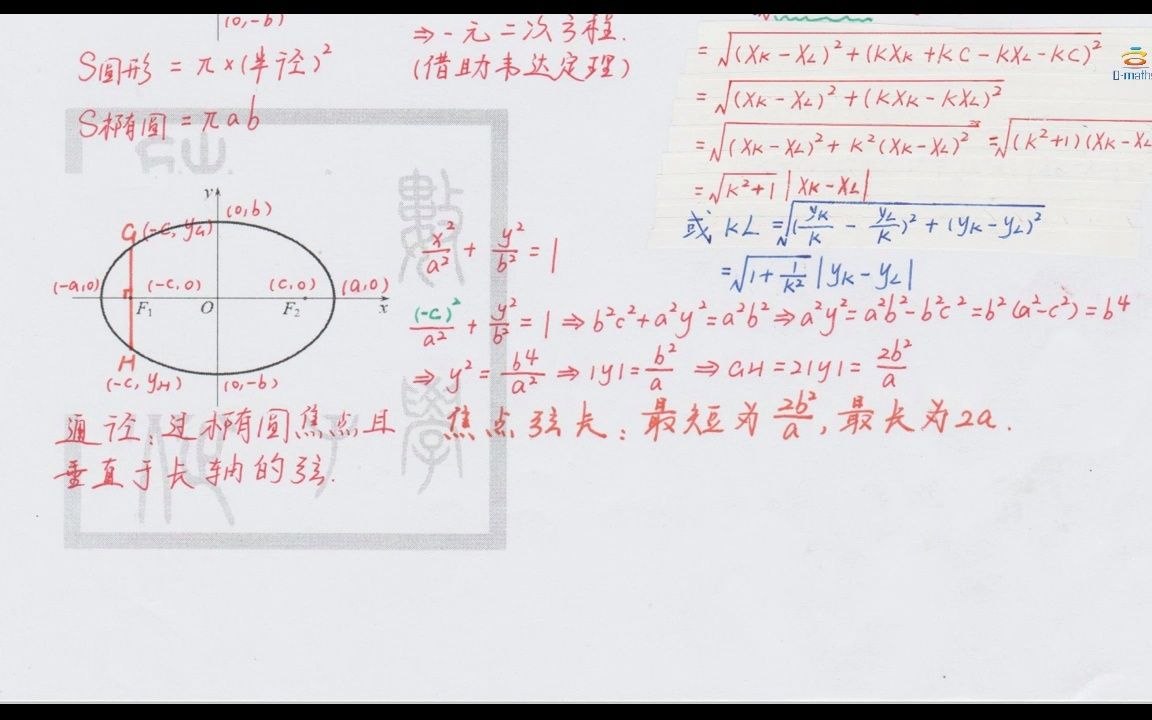 (0,-b)
⇒一元二次方程.
(借助韦达定理)
S圆形 = π×(半径)²
S椭圆 = πab
= √((XK-XL)²+(KXK+KC-KXL-KC)²)
= √((XK-XL)²+(KXK-KXL)²)
= √((XK-XL)²+K²(XK-XL)²) = √((K²+1)(XK-XL
= √(K²+1) |XK-XL|
或 KL = √((yK/K - yL/K)²+(yK-yL)²)
= √(1+1/K²) |yK-yL|
y
(0,b)
G (-c, yG)
(-a,0) (-c,0) (c,0) (a,0)
F₁ O F₂ x
H
(-c, yH) (0,-b)
x²/a² + y²/b² = 1
(-c)²/a² + y²/b² = 1 ⇒ b²c²+a²y²=a²b² ⇒ a²y²=a²b²-b²c²=b²(a²-c²)=b⁴
⇒ y² = b4/a² ⇒ |y|= b²/a ⇒ GH=2|y|= 2b²/a
通径:过椭圆焦点且
垂直于长轴的弦.
焦点弦长:最短为 2b²/a, 最长为2a.
數
學
-maths